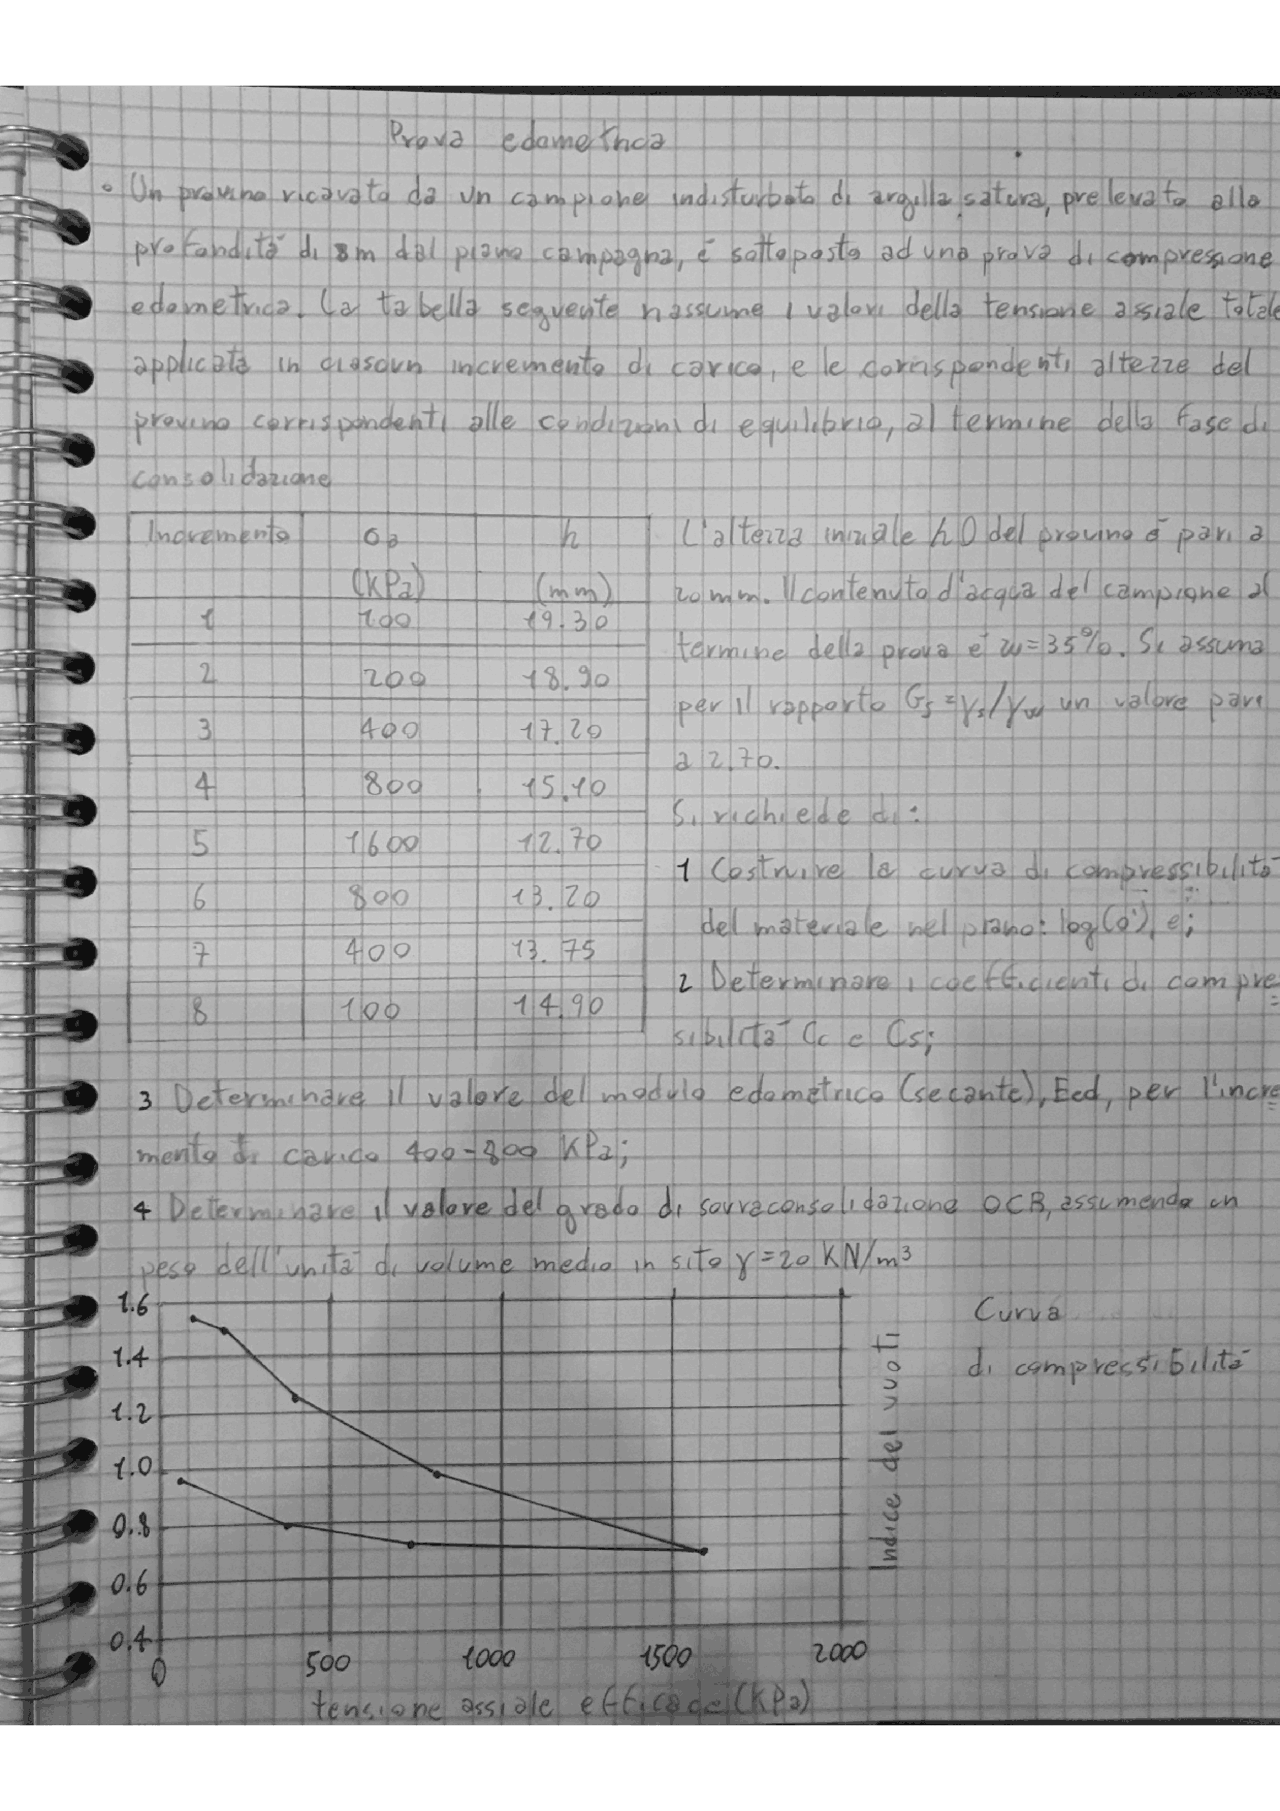 Prova edometrica
• Un provino ricavato da un campione indisturbato di argilla satura, prelevato alla
profondità di 8m dal piano campagna, é sottoposto ad una prova di compressione
edometrica. La tabella seguente riassume i valori della tensione assiale totale
applicata in ciascun incremento di carico, e le corrispondenti altezze del
provino corrispondenti alle condizioni di equilibrio, al termine della fase di
consolidazione
Incremento σa h
(KPa) (mm)
1 100 19.30
2 200 18.90
3 400 17.20
4 800 15.10
5 1600 12.70
6 800 13.20
7 400 13.75
8 100 14.90
L'altezza iniziale h0 del provino é pari a
20mm. Il contenuto d'acqua del campione al
termine della prova é w=35%. Si assuma
per il rapporto Gs=γs/γw un valore pari
a 2.70.
Si richiede di:
1 Costruire la curva di compressibilitá
del materiale nel piano: log(σ'), e;
2 Determinare i coefficienti di compre=
sibilitá Cc e Cs;
3 Determinare il valore del modulo edometrico (secante), Eed, per l'incre=
mento di carico 400-800 KPa;
4 Determinare il valore del grado di sovraconsolidazione OCR, assumendo un
peso dell'unitá di volume medio in sito γ=20 KN/m³
Curva
di compressibilitá
1.6
1.4
1.2
1.0
0.8
0.6
0.4
0 500 1000 1500 2000
Indice dei vuoti
tensione assiale efficace (KPa)